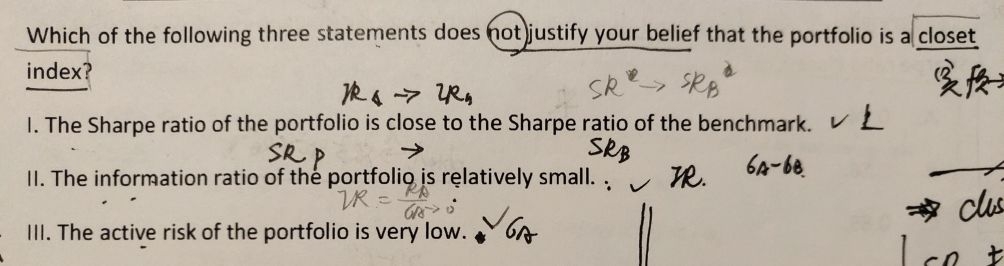 Which of the following three statements does not justify your belief that the portfolio is a closet
index?
SR → SR_B
I. The Sharpe ratio of the portfolio is close to the Sharpe ratio of the benchmark. ✓
SR P → SR_B
II. The information ratio of the portfolio is relatively small. ✓ IR. 6A-6B
IR =
III. The active risk of the portfolio is very low. ✓ 6A